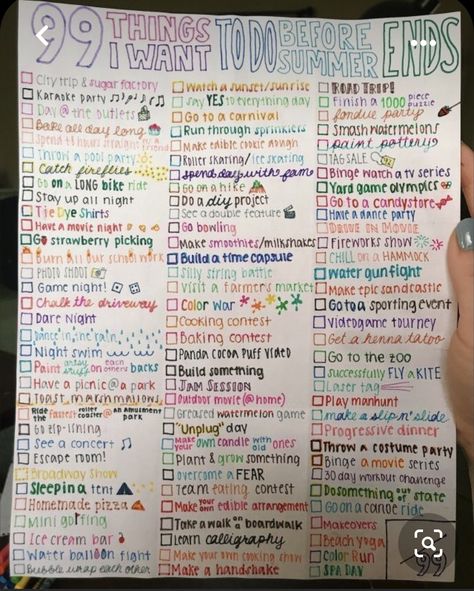 99 THINGS I WANT TO DO BEFORE SUMMER ENDS
City trip & sugar factory
Karaoke party
Day @ the outlets
Bake all day long
Spend 48 hours straight
Throw a pool party
Catch fireflies
Go on a LONG bike ride
Stay up all night
Tie Dye Shirts
Have a movie night
Go strawberry picking
Burn all our school work
PHOTO SHOOT
Game night!
Chalk the driveway
Dare Night
Dance in the rain
Night swim
Paint artsy stuff on each others backs
Have a picnic @ a park
Toast marshmallows
Ride the fastest roller coaster @ an amusement park
Go zip-lining
See a concert
Escape room!
Broadway Show
Sleep in a tent
Homemade pizza
Mini golfing
Ice cream bar
Water balloon fight
Bubble wrap each other
Watch a sunset/sunrise
say YES to everything day
Go to a carnival
Run through sprinklers
Make edible cookie dough
Roller skating/ice skating
spend day with fam
Go on a hike
Do a diy project
See a double feature
Go bowling
Make smoothies/milkshakes
Build a time capsule
Silly string battle
Visit a farmers market
Color War
Cooking contest
Baking contest
Panda Cocoa Puff Video
Build something
JAM SESSION
Outdoor movie (@ home)
Greased watermelon game
"Unplug" day
Make your own candle with old ones
Plant & grow something
overcome a FEAR
Team eating contest
Make your own edible arrangement
Take a walk on a boardwalk
Learn calligraphy
Make your own cooking show
Make a handshake
ROAD TRIP!
Finish a 1000 piece puzzle
fondue party
Smash watermelons
paint pottery
TAG SALE
Binge watch a tv series
Yard game olympics
Go to a candystore
Have a dance party
DRIVE IN MOVIE
Fireworks show
CHILL on a HAMMOCK
Water gun fight
Make epic sandcastle
Go to a sporting event
Videogame tourney
Get a henna tatoo
Go to the zoo
successfully FLY a KITE
Laser tag
Play manhunt
make a slip n' slide
Progressive dinner
Throw a costume party
Binge a movie series
30 day workout challenge
Do something out of state
Go on a canoe ride
Makeovers
Beach yoga
Color Run
SPA DAY
99